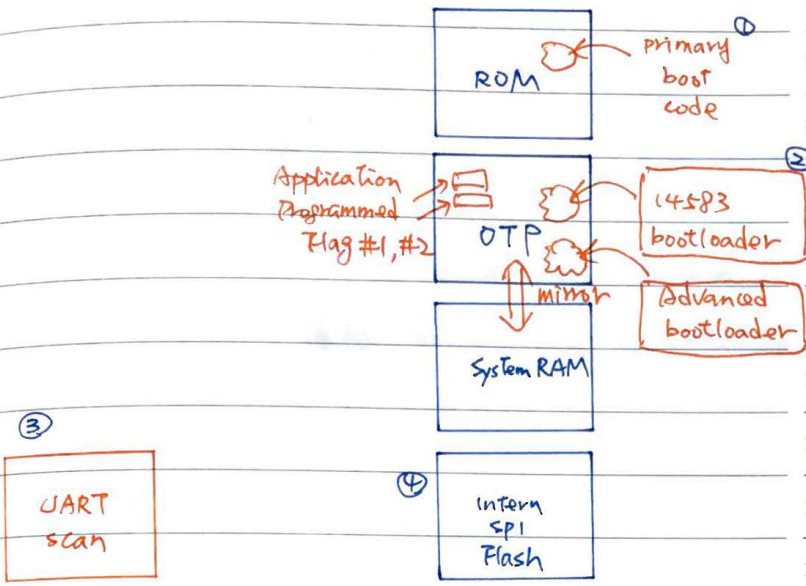 ①
primary
boot
code
ROM
②
Application
Programmed
Flag #1, #2
OTP
14583
bootloader
mirror
Advanced
bootloader
System RAM
③
UART
scan
④
intern
SPI
Flash